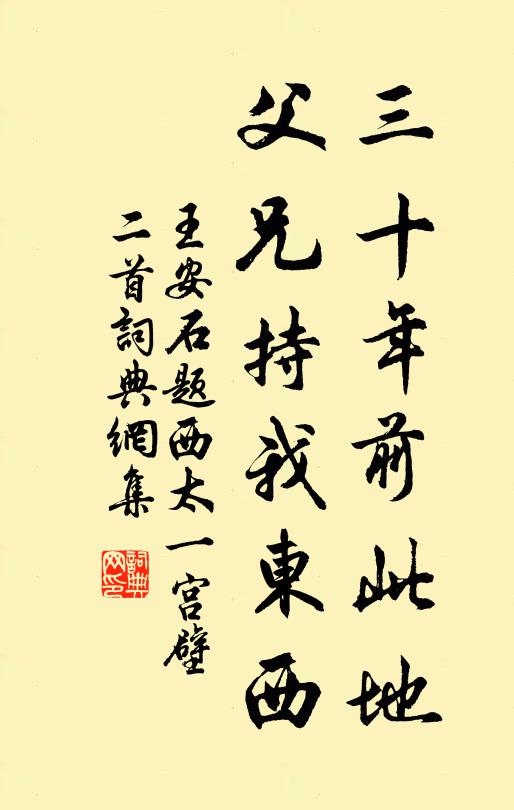 三十年前此地
父兄持我東西
王安石题西太一宫壁
二首詞典網集
詞典
网印